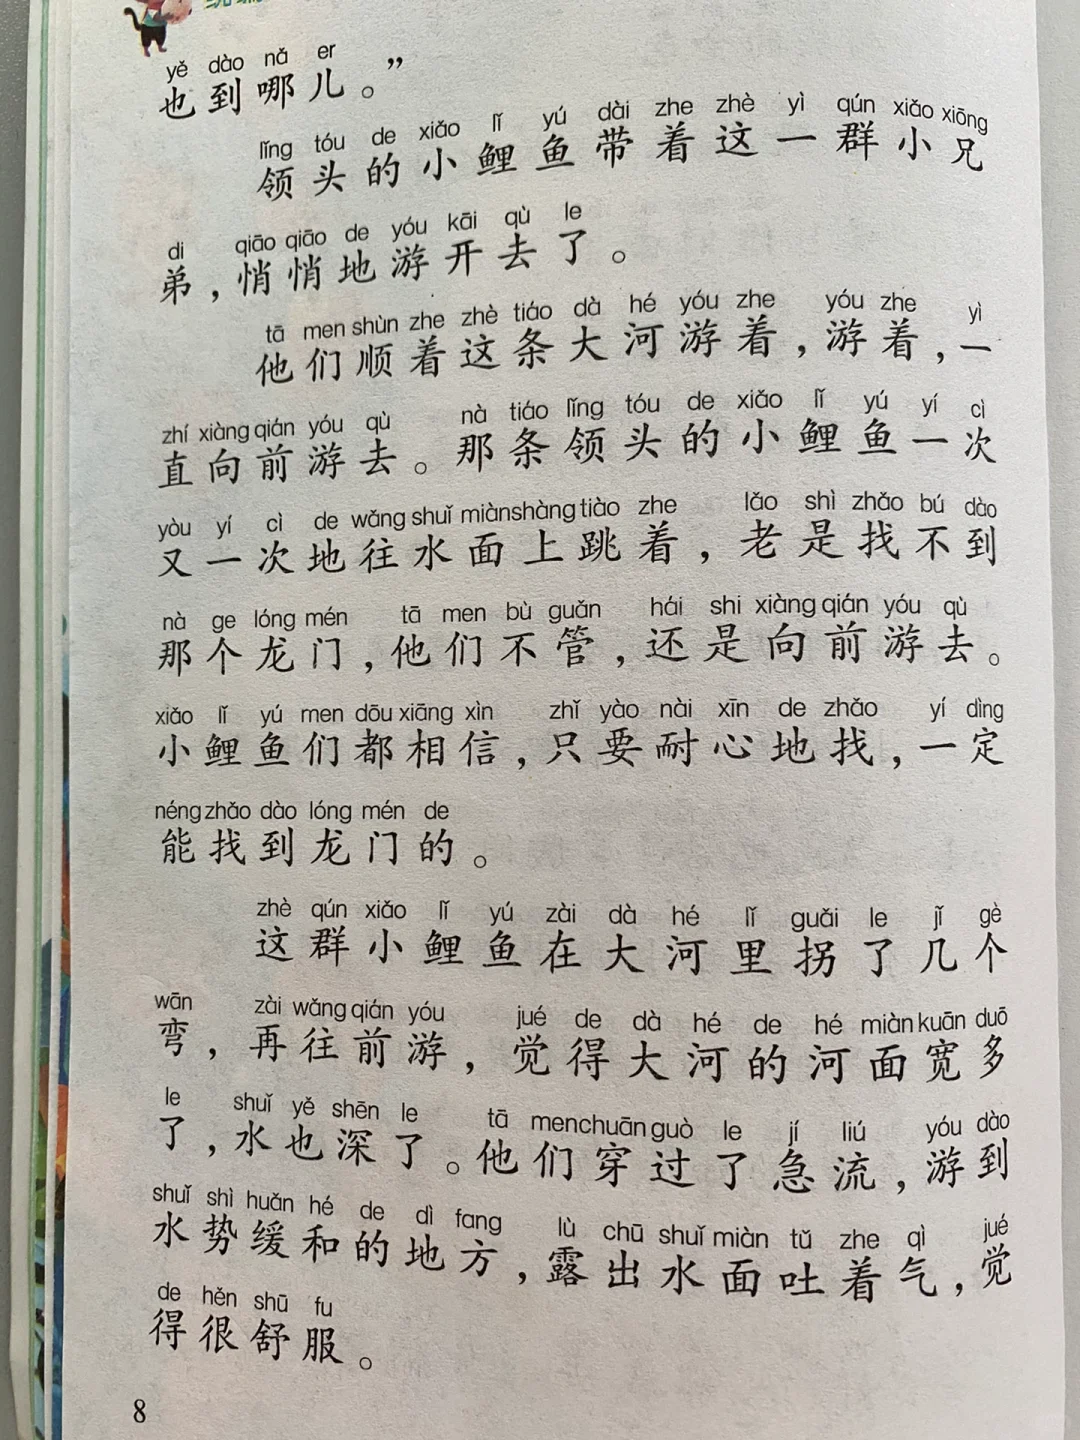 yě dào nǎ er
也到哪儿。”
lǐng tóu de xiǎo lǐ yú dài zhe zhè yì qún xiǎo xiōng
领头的小鲤鱼带着这一群小兄
di qiāo qiāo de yóu kāi qù le
弟，悄悄地游开去了。
tā men shùn zhe zhè tiáo dà hé yóu zhe yóu zhe yì
他们顺着这条大河游着，游着，一
zhí xiàng qián yóu qù nà tiáo lǐng tóu de xiǎo lǐ yú yí cì
直向前游去。那条领头的小鲤鱼一次
yòu yí cì de wǎng shuǐ miàn shàng tiào zhe lǎo shì zhǎo bú dào
又一次地往水面上跳着，老是找不到
nà ge lóng mén tā men bù guǎn hái shi xiàng qián yóu qù
那个龙门，他们不管，还是向前游去。
xiǎo lǐ yú men dōu xiāng xìn zhǐ yào nài xīn de zhǎo yí dìng
小鲤鱼们都相信，只要耐心地找，一定
néng zhǎo dào lóng mén de
能找到龙门的。
zhè qún xiǎo lǐ yú zài dà hé lǐ guǎi le jǐ gè
这群小鲤鱼在大河里拐了几个
wān zài wǎng qián yóu jué de dà hé de hé miàn kuān duō
弯，再往前游，觉得大河的河面宽多
le shuǐ yě shēn le tā men chuān guò le jí liú yóu dào
了，水也深了。他们穿过了急流，游到
shuǐ shì huǎn hé de dì fang lù chū shuǐ miàn tǔ zhe qì jué
水势缓和的地方，露出水面吐着气，觉
de hěn shū fu
得很舒服。
8